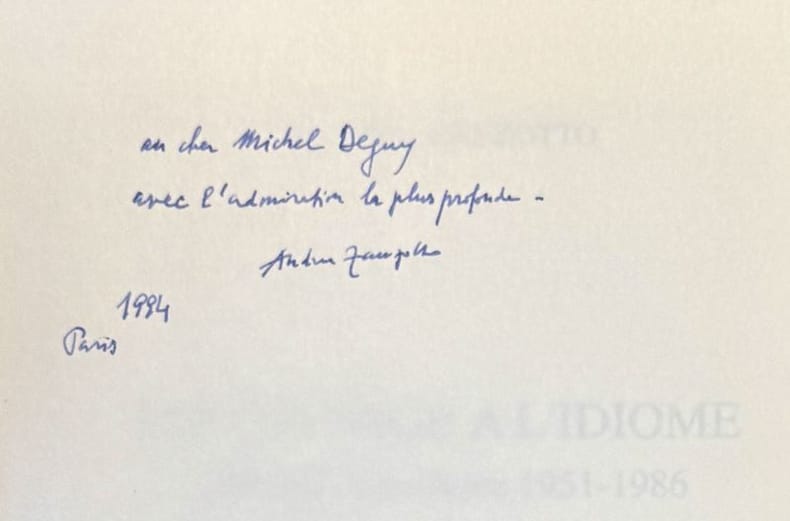 au cher Michel Deguy
avec l'admiration la plus profonde -
Andrea Zanzotto
1994
Paris
A L'IDIOME
1951-1986